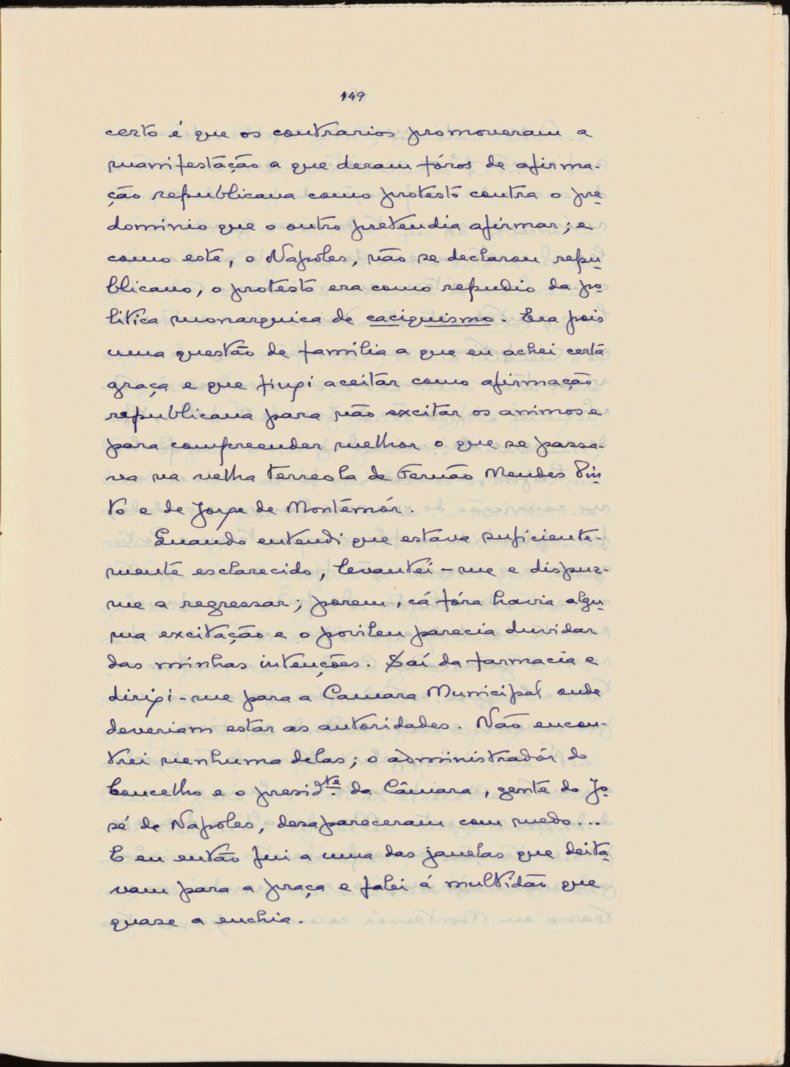 149
certo é que os contrarios promoveram a
manifestação a que deram fóros de afirma-
ção republicana como protesto contra o pre
dominio que o outro pretendia afirmar; e
como este, o Napoles, não se declarou repu
blicano, o protesto era como repudio da po
litica monarquica de caciquismo. Era pois
uma questão de familia a que eu achei certa
graça e que fingi aceitar como afirmação
republicana para não excitar os animos e
para compreender melhor o que se passa-
va na velha terreola de Fernão Mendes Pin
to e de Jorge de Montemór.
Quando entendi que estava suficiente-
mente esclarecido, levantei-me e dispuz-
me a regressar; porem, cá fóra havia algu
ma excitação e o poviléu parecia duvidar
das minhas intenções. Saí da farmacia e
dirigi-me para a Camara Municipal onde
deveriam estar as autoridades. Não encon-
trei nenhuma delas; o administradór do
Concelho e o presidte da Câmara, gente do Jo
sé de Napoles, desapareceram com medo...
E eu então fui a uma das janelas que deita
vam para a praça e falei á multidão que
quase a enchia.